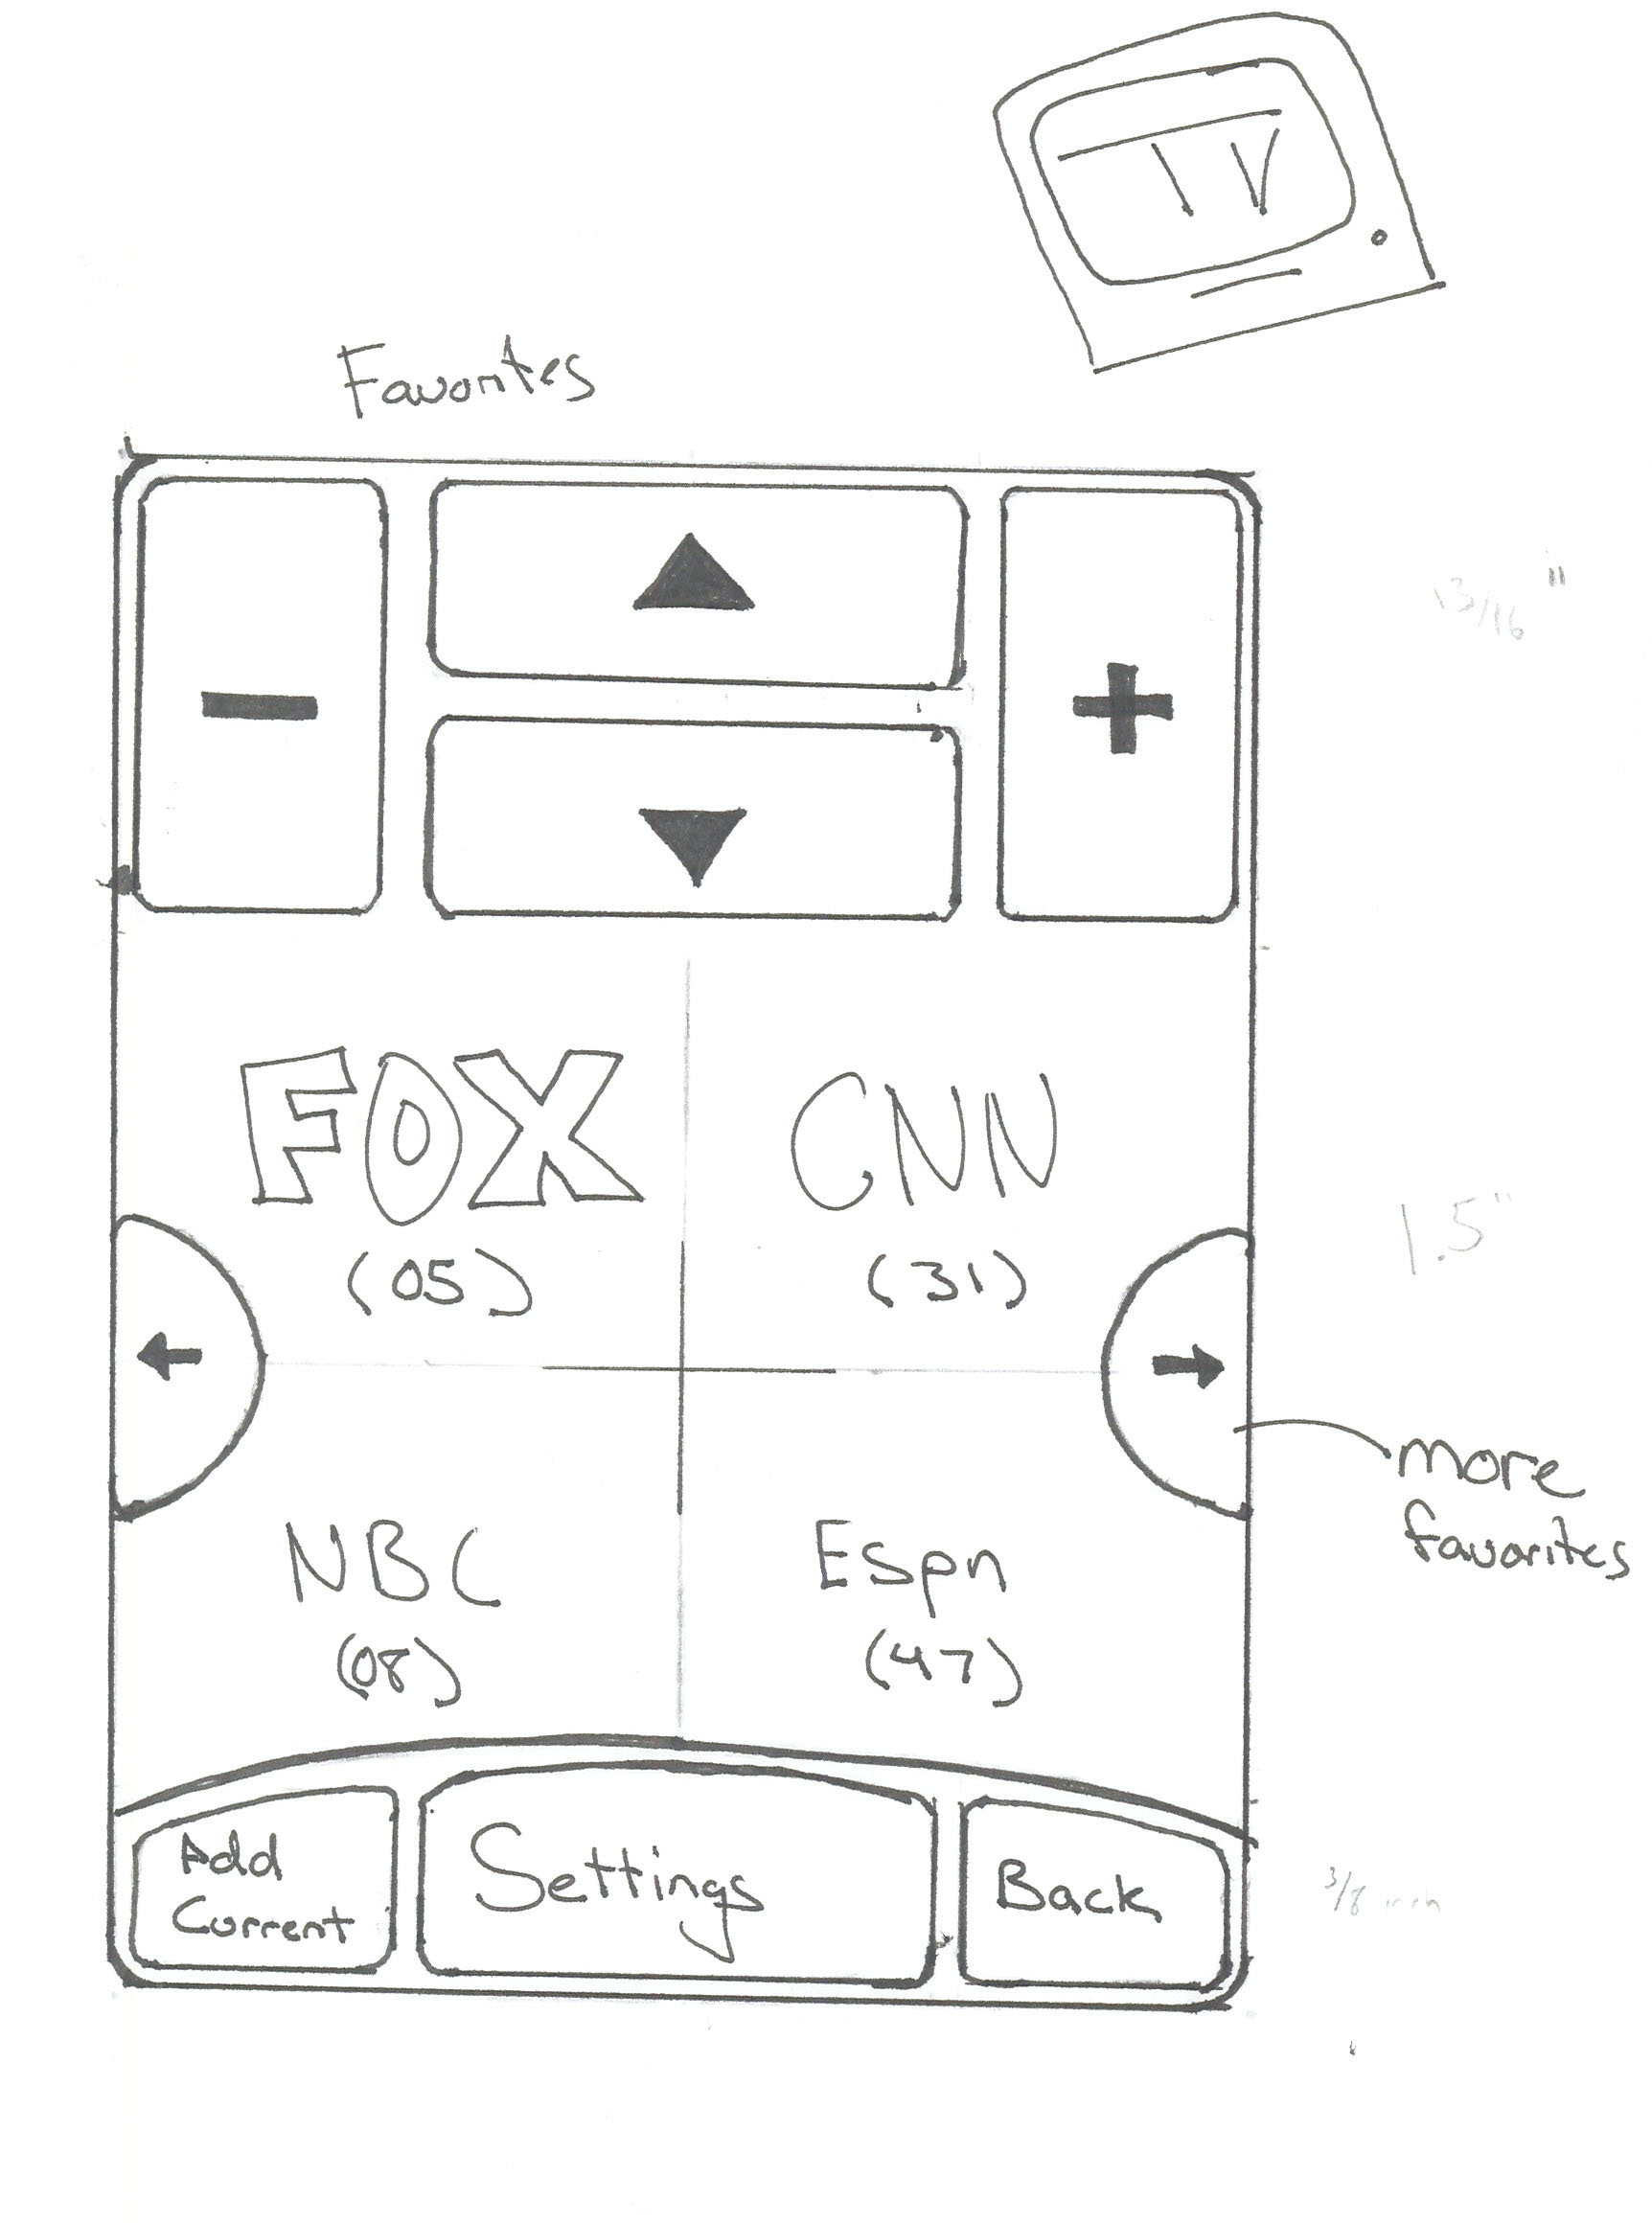 TV
Favorites
13/16 "
FOX
CNN
(05)
(31)
1.5"
more
favorites
NBC
Espn
(08)
(47)
Add
Current
Settings
Back
3/8 inch